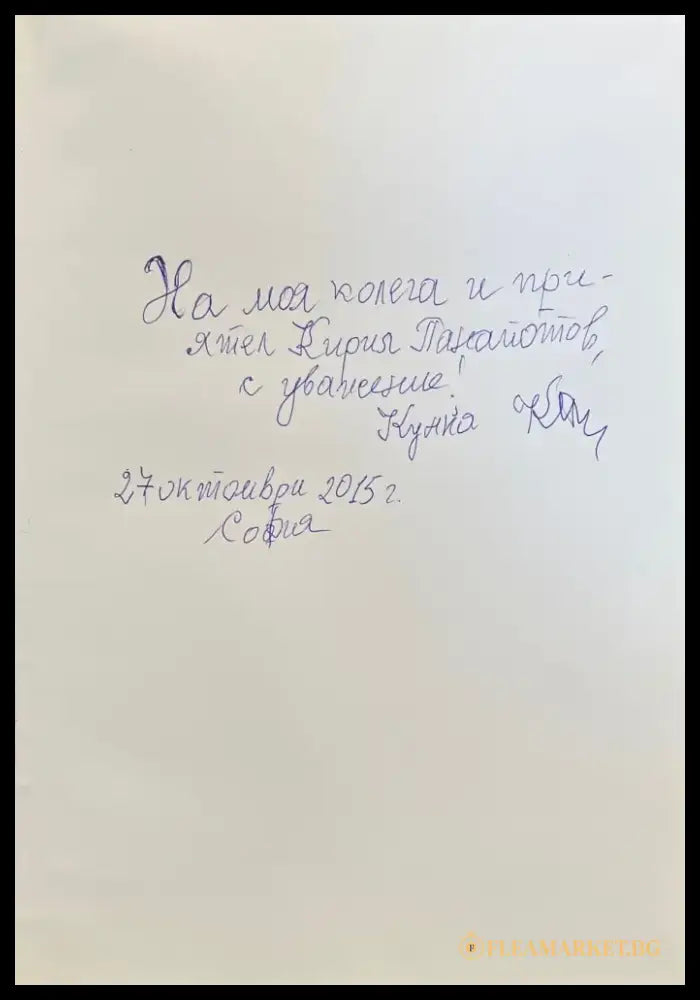 На моя колега и при-
ятел Кирил Панайотов,
с уважение!
Кунка
27 октомври 2015 г.
София
FLEAMARKET.BG